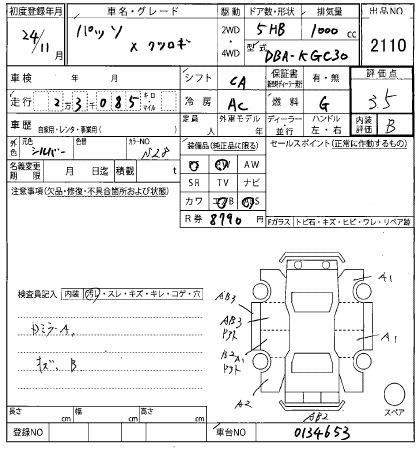 初度登録年月 車名・グレード 駆動 ドア数・形状 排気量 出品NO
24/11月 パッソ 2WD・4WD 5HB 1000cc 2110
X クツロギ 型式 DBA-KGC30
車検 年 月 シフト CA 保証書 評価点
走行 2万3千085 キロ・マイル 冷房 AC 燃料 G 3.5
車歴 自家用・レンタ・事業用( ) 定員 人 外車モデル 年 ディーラー・並行 ハンドル 左・右 内装評価 B
外色 元色 シルバー 色替 カラーNO N28 装備品(純正品に限る) セールスポイント(正常に作動するもの)
名義変更期限 月 日迄 積載 t PS PW AW
SR TV ナビ
注意事項(欠品・修復・不具合箇所および状態) カワ エアB ABS
R券 8790円
Fガラス トビ石・キズ・ヒビ・ワレ・リペア跡
検査員記入 内装 汚れ・スレ・キズ・キレ・コゲ・穴
A1
AB3
AB3
ドアクト
A1
B2 A1
ドアクト
A2
AB2
キズ、B
スペア
長さ cm 幅 cm 高さ cm
登録NO 車台NO 0134653